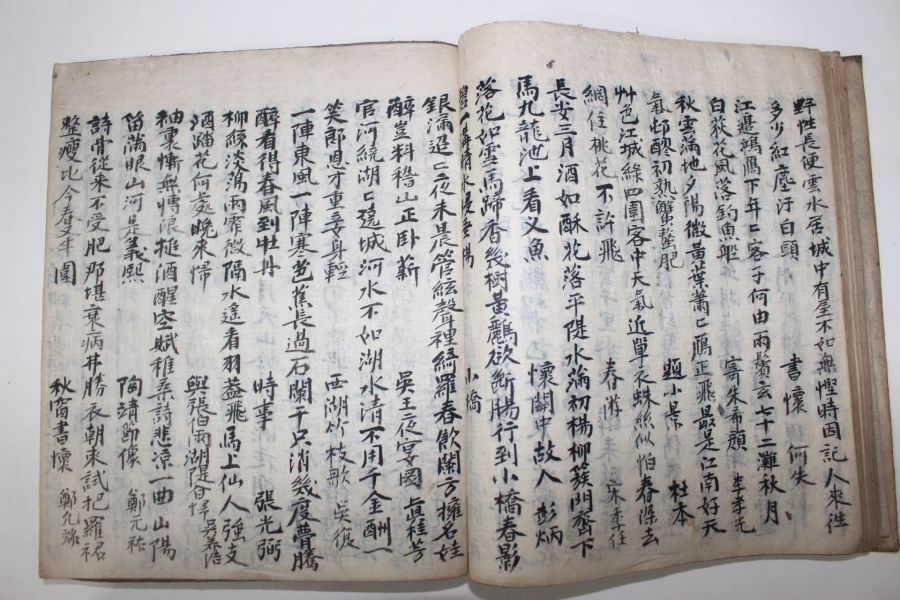 野性長便雲水居城中有至不如無慳時因記人來往
多少紅塵汙白頭　書懷　何失
江邊鴻鴈下年〻客子何由兩鬢玄七十二灘秋月
白荻花風落釣魚船　寄朱希顏　李孝光
秋雲滿地夕陽微黃葉蕭〻鴈正飛最是江南好天
氣邨醪初熟蟹螯肥　題小景　杜本
艸色江城綠四圍客中天氣近單衣蛛絲似怕春深去
網住桃花不許飛　春游　宋季任
長安三月酒如酥花落平隄水滿初楊柳簇門齊下
馬九龍池上看叉魚　懷關中故人　彭炳
落花如雪馬蹄香幾樹黃鸝欲斷腸行到小橋春影
小橋
銀漏迢〻夜未晨管絃聲裡綺羅春歡闌方擁名娃
醉豈料稽山正臥薪　吳王夜宴圖　貢桂芳
官河繞湖〻遶城河水不如湖水清不用千金酬一
笑郎恩才重妾身輕　西湖竹枝歌　吳復
一陣東風一陣寒芭蕉長過石闌干只消幾度瞢騰
醉看得春風到牡丹　時事　張光弼
柳絲淡蕩雨霏微隔水遙看羽蓋飛馬上仙人強支
酒踏花何處晚來歸　與張伯雨湖隄自悮　吳善浩
袖裏慚無博浪搥酒醒空賦稚桑詩悲涼一曲山陽
笛滿眼山河是義熙　陶靖節像　鄭元祐
詩骨從來不受肥那堪衰病井勝衣朝來試把羅裙
整瘦比今春又半圍　秋窗書懷　鄭允端